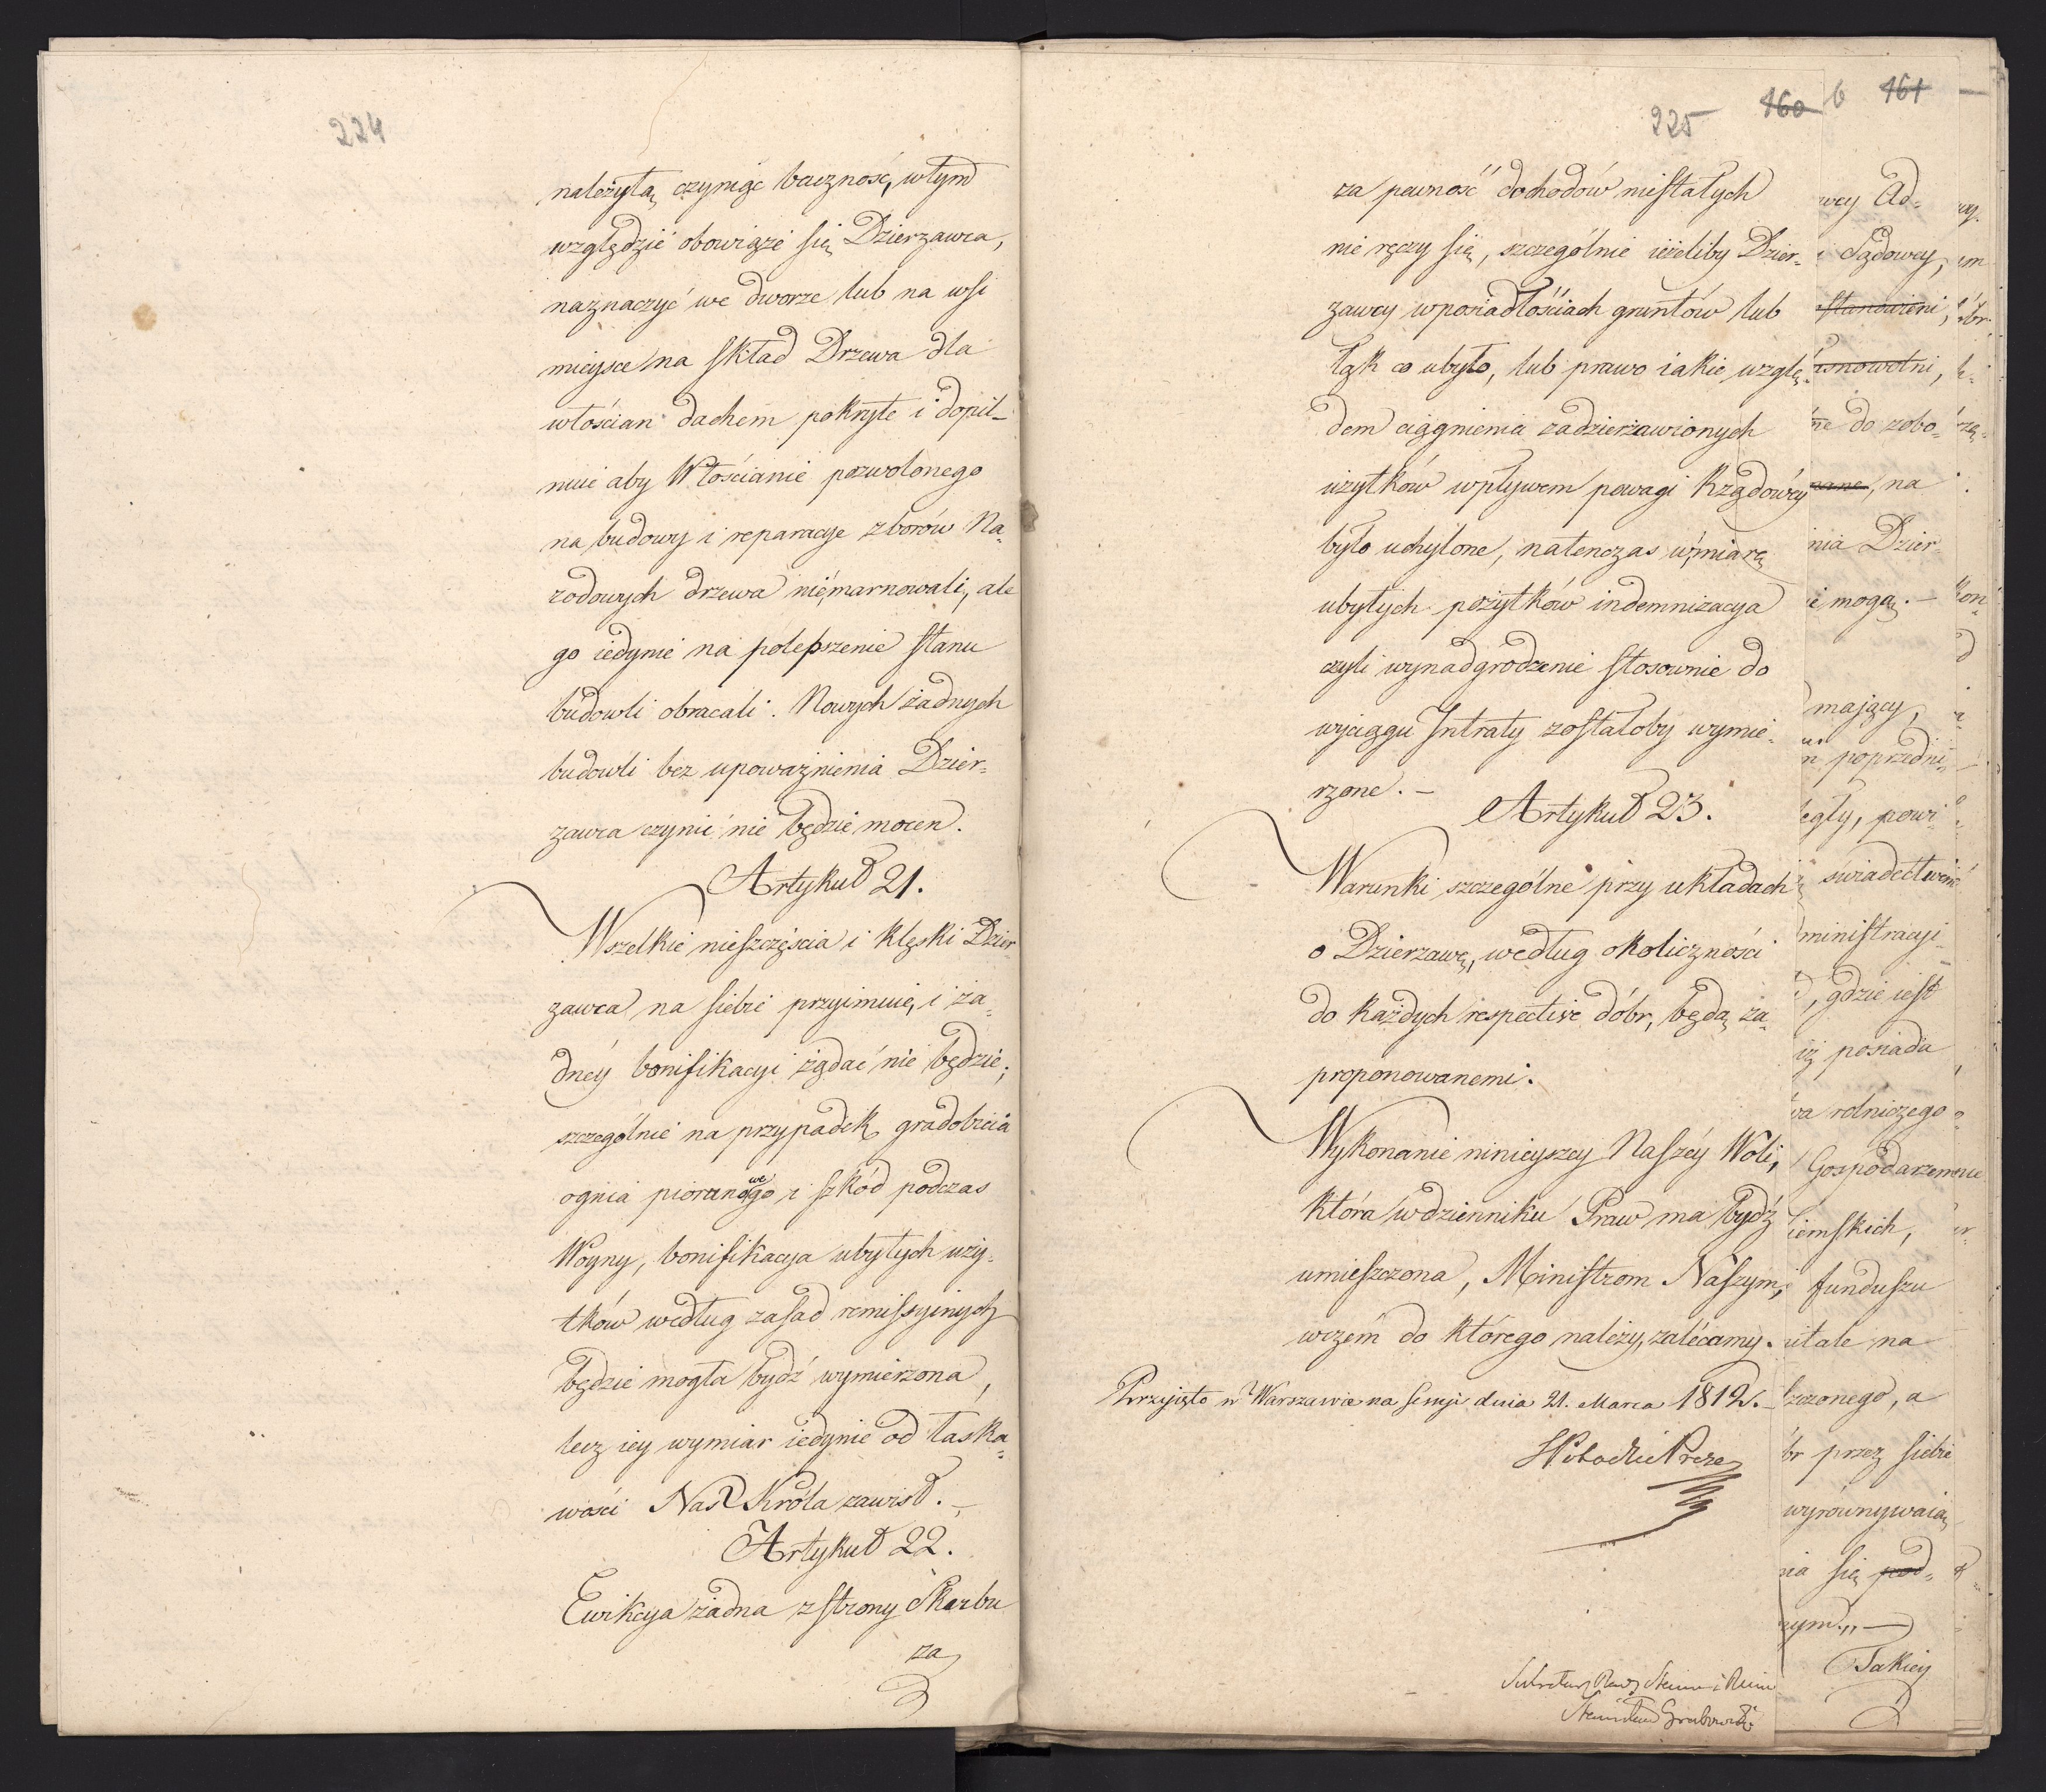 224
należytą czyniąc baczność, w tym
względzie obowiąże się Dzierzawca,
naznaczyć we dworze lub na wsi
mieysce na skład Drzewa dla
włościan dachem pokryte i dopil-
nuie aby Włościanie pozwolonego
na budowy i reparacye z borów Na-
rodowych drzewa nie marnowali, ale
go iedynie na polepszenie stanu
budowli obracali. Nowych żadnych
budowli bez upoważnienia Dzier-
zawca czynić nie będzie mocen.
Artykuł 21.
Wszelkie nieszczęścia i klęski Dzier
zawca na siebie przyimuie, i ża-
dnéy bonifikacyi żądać nie będzie;
szczególnie na przypadek gradobicia
ognia piorunowego i szkód podczas
Woyny, bonifikacya ubyłych uży-
tków według zasad remissyinych
będzie mogła bydź wymierzona,
lecz iey wymiar iedynie od łaska-
wości Nas Króla zawisł. –
Artykuł 22.
Ewikcya żadna z strony Skarbu
za
225 460 b 461
za pewność dochodów niestałych
nie ręczy się, szczególnie ieżeliby Dzier-
zawcy w posiadłościach gruntów lub
łąk co ubyło, lub prawo iakie wzglę-
dem ciągnienia zadzierżawionych
użytków wpływem powagi Rządowéy
było uchylone, natenczas w miarę
ubyłych pożytków indemnizacya
czyli wynadgrodzenie stosownie do
wyciągu Intraty zostałoby wymie-
rzone. –
Artykuł 23.
Warunki szczególne przy układach
o Dzierzawę, według okoliczności
do każdych respective dóbr, będą za-
proponowanemi.
Wykonanie ninieyszey Naszéy Woli,
która w dzienniku Praw ma bydź
umieszczona, Ministrom Naszym,
w czém do którego należy, zalécamy.
Przyięto w Warszawie na sessyi dnia 21. Marca 1812. –
S Potocki Prezes
Sekretarz Rady Stanu i
Stanisław Grabowski
wcy Ad-
Sądowcy,
stanowieni,
snowolni,
do zobo-
na
nia Dzier-
mogą. –
mający,
poprzedni-
egły, powi-
świadectwem
ministracyi
gdzie iest
posiada
rolniczego
Gospodarzem
iemskich,
funduszu
itale na
zczonego, a
br przez siebie
wyrównywaią
nia się pod-
nym.„ –
Takiey